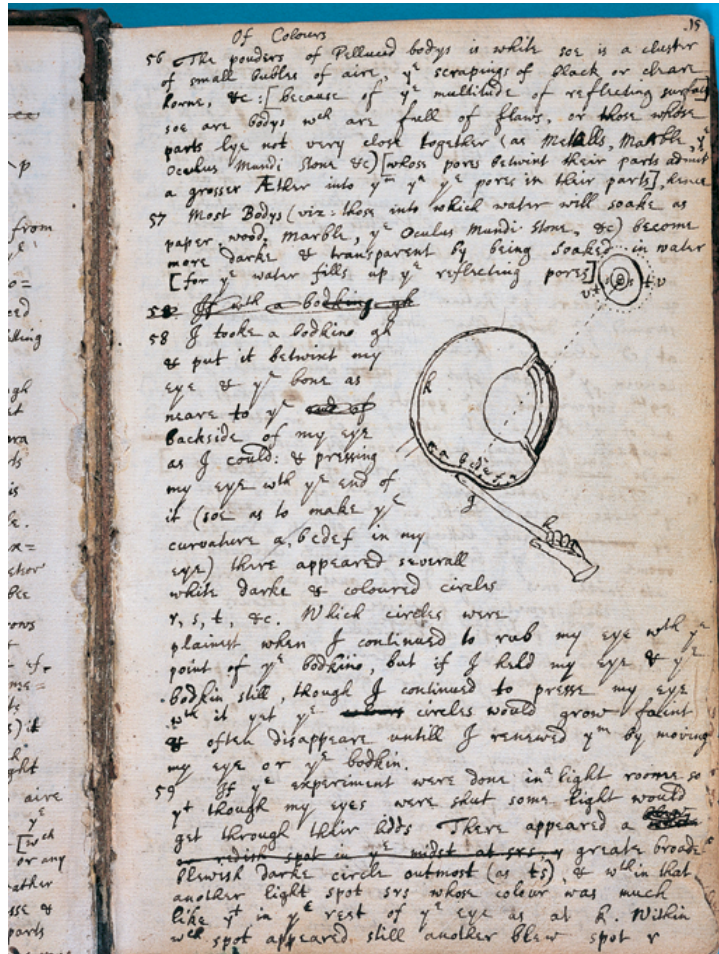 Of Colours
15
56 The pouders of Pellucid bodys is white soe is a cluster
of small bubles of aire, yᵉ scrapings of black or cleare
horne, &c: [because of yᵉ multitude of reflecting surfaces]
soe are bodys wᶜʰ are full of flaws, or those whose
parts lye not very close together (as Metalls, Marble, yᵉ
Oculus Mundi Stone &c) [whose pores betwixt their parts admit
a grosser Æther into yᵐ yⁿ yᵉ pores in their parts], hence
57 Most Bodys (viz: those into which water will soake as
paper, wood, marble, yᵉ Oculus Mundi Stone, &c) become
more darke & transparent by being soaked in water
[for yᵉ water fills up yᵉ reflecting pores]
58 If wth a bodking gh
58 I tooke a bodkine gh
& put it betwixt my
eye & yᵉ bone as
neare to yᵉ end of
backside of my eye
as I could: & pressing
my eye wth yᵉ end of
it (soe as to make yᵉ
curvature a, bcdef in my
eye) there appeared severall
white darke & coloured circles
r, s, t, &c. Which circles were
plainest when I continued to rub my eye wth yᵉ
point of yᵉ bodkine, but if I held my eye & yᵉ
bodkin still, though I continued to presse my eye
wth it yet yᵉ circles would grow faint
& often disappeare untill I renewed yᵐ by moving
my eye or yᵉ bodkin.
59 If yᵉ experiment were done in a light roome so
yᵗ though my eyes were shut some light would
get through their lidds There appeared a
redish spot in yᵉ midst at srs, greate broade
blewish darke circle outmost (as ts), & wthin that
another light spot srs whose colour was much
like yᵗ in yᵉ rest of yᵉ eye as at k. Within
wᶜʰ spot appeared still another blew spot r
k
a b c d e f
g
h
t s r s t
p
from
yᵉ
lling
gh
ct
ora
is
rows
ef-
s) it
ght
aire
yᵉ
[wᶜʰ
or any
rather
sse &
parts